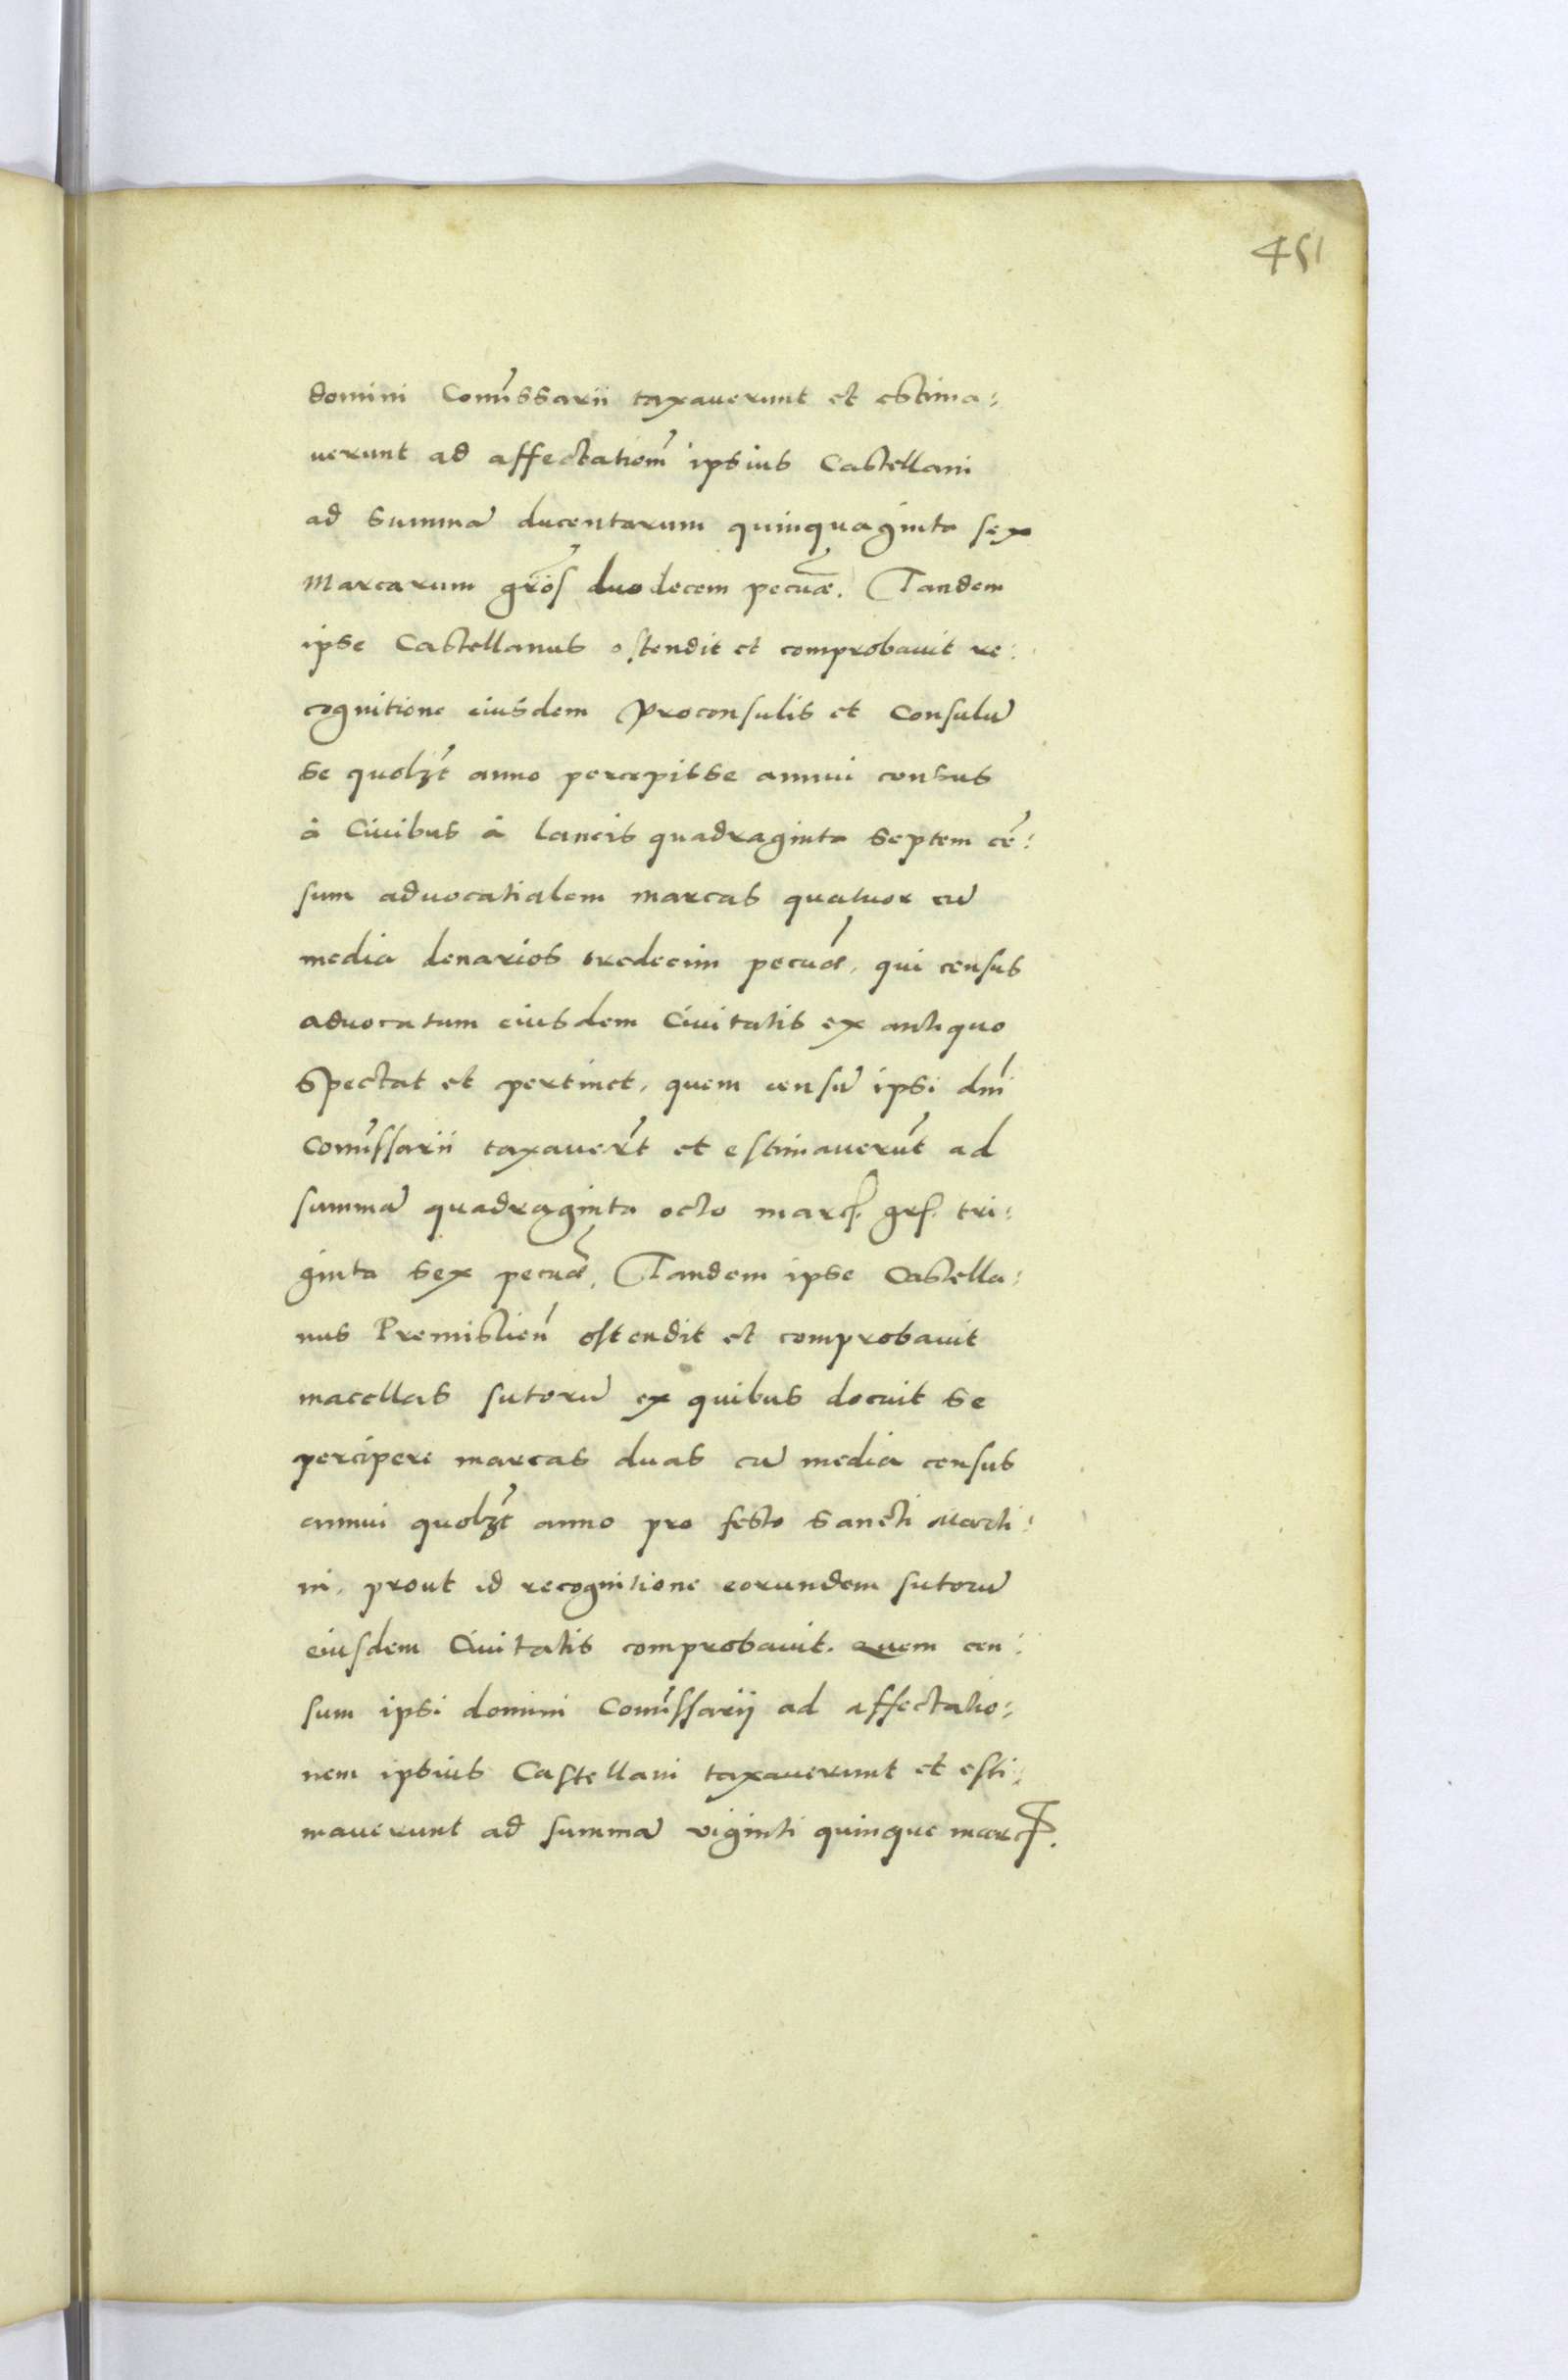 451
domini Com̃issarii taxauerunt et estima:
uerunt ad affectationẽ ipsius Castellani
ad summã ducentarum quinquaginta sex
Marcarum gros̃ duodecem pecuæ̃. Tandem
ipse Castellanus ostendit et comprobauit re:
cognitione eiusdem proconsulis et Consulũ
se quolzt̃ anno percepisse annui census
à Ciuibus à laneis quadraginta septem cẽ:
sum aduocatialem marcas quatuor cũ
media denarios tredecim pecuæ̃, qui census
aduocatum eiusdem Ciuitatis ex antiquo
spectat et pertinet, quem censũ ipsi dñi
Com̃issarii taxauer̃t et estimauerũt ad
summã quadraginta octo marcȩ. grſ. tri:
ginta sex pecuæ̃. Tandem ipse Castella:
nus Premislień ostendit et comprobauit
macellas sutorũ ex quibus docuit se
percipere marcas duas cũ media census
annui quolzt̃ anno pro festo Sancti Marti:
ni, prout id recognitione eorundem sutorũ
eiusdem Ciuitatis comprobauit. Quem cen:
sum ipsi domini Com̃issarij ad affectatio:
nem ipsius Castellani taxauerunt et esti:
mauerunt ad summã viginti quinque marcȩ.